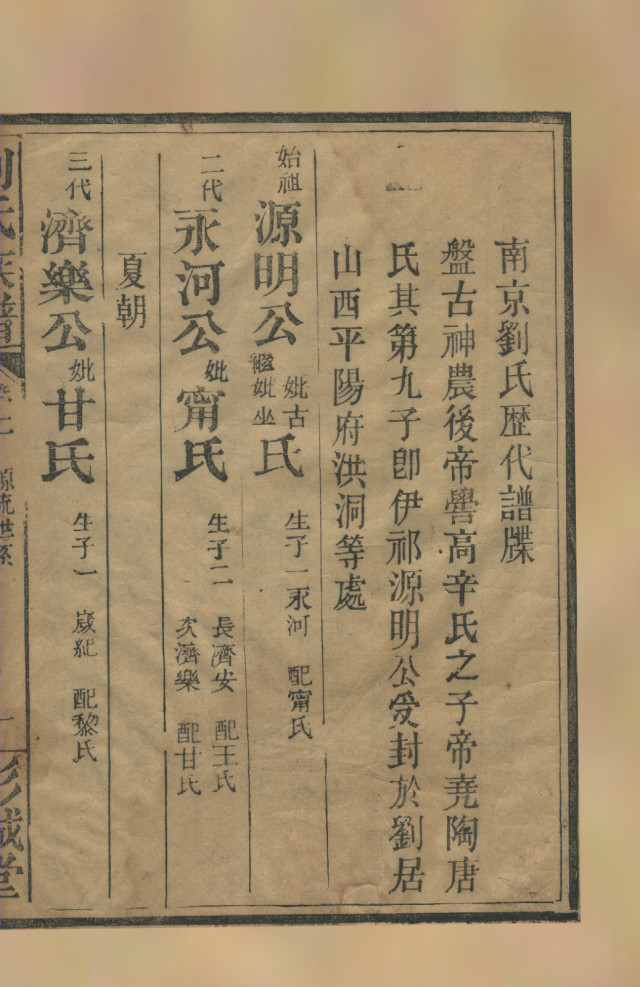 南京劉氏歷代譜牒
盤古神農後帝嚳高辛氏之子帝堯陶唐
氏其第九子卽伊祁源明公受封於劉居
山西平陽府洪洞等處
始祖 源明公 妣古 繼妣坐 氏 生子一永河 配甯氏
二代 永河公 妣甯氏 生子二 長濟安 配王氏 次濟樂 配甘氏
夏朝
三代 濟樂公 妣甘氏 生子一 歲紀 配黎氏
源流世系
彭城堂